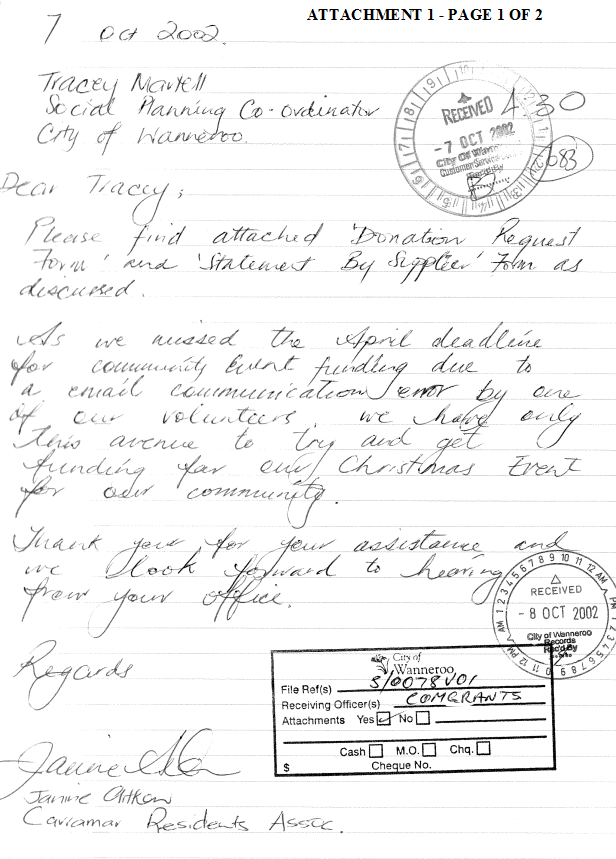 ATTACHMENT 1 - PAGE 1 OF 2
7 Oct 2002.
Tracey Martell
Social Planning Co-ordinator
City of Wanneroo.
RECEIVED
- 7 OCT 2002
City Of Wanneroo
4 30
Dear Tracey,
Please find attached 'Donation Request
Form' and 'Statement By Supplier' Form as
discussed.
As we missed the April deadline
for community Event funding due to
a email communication error by one
of our volunteers, we have only
this avenue to try and get
funding for our Christmas Event
for our community.
Thank you for your assistance and
we look forward to hearing
from your office.
RECEIVED
- 8 OCT 2002
City of Wanneroo
Records
Rec'd By
Regards
City of
Wanneroo
File Ref(s) S/0078V01
Receiving Officer(s) COMGRANTS
Attachments Yes No
Cash M.O. Chq.
$ Cheque No.
Janine Aitken
Carramar Residents Assoc.